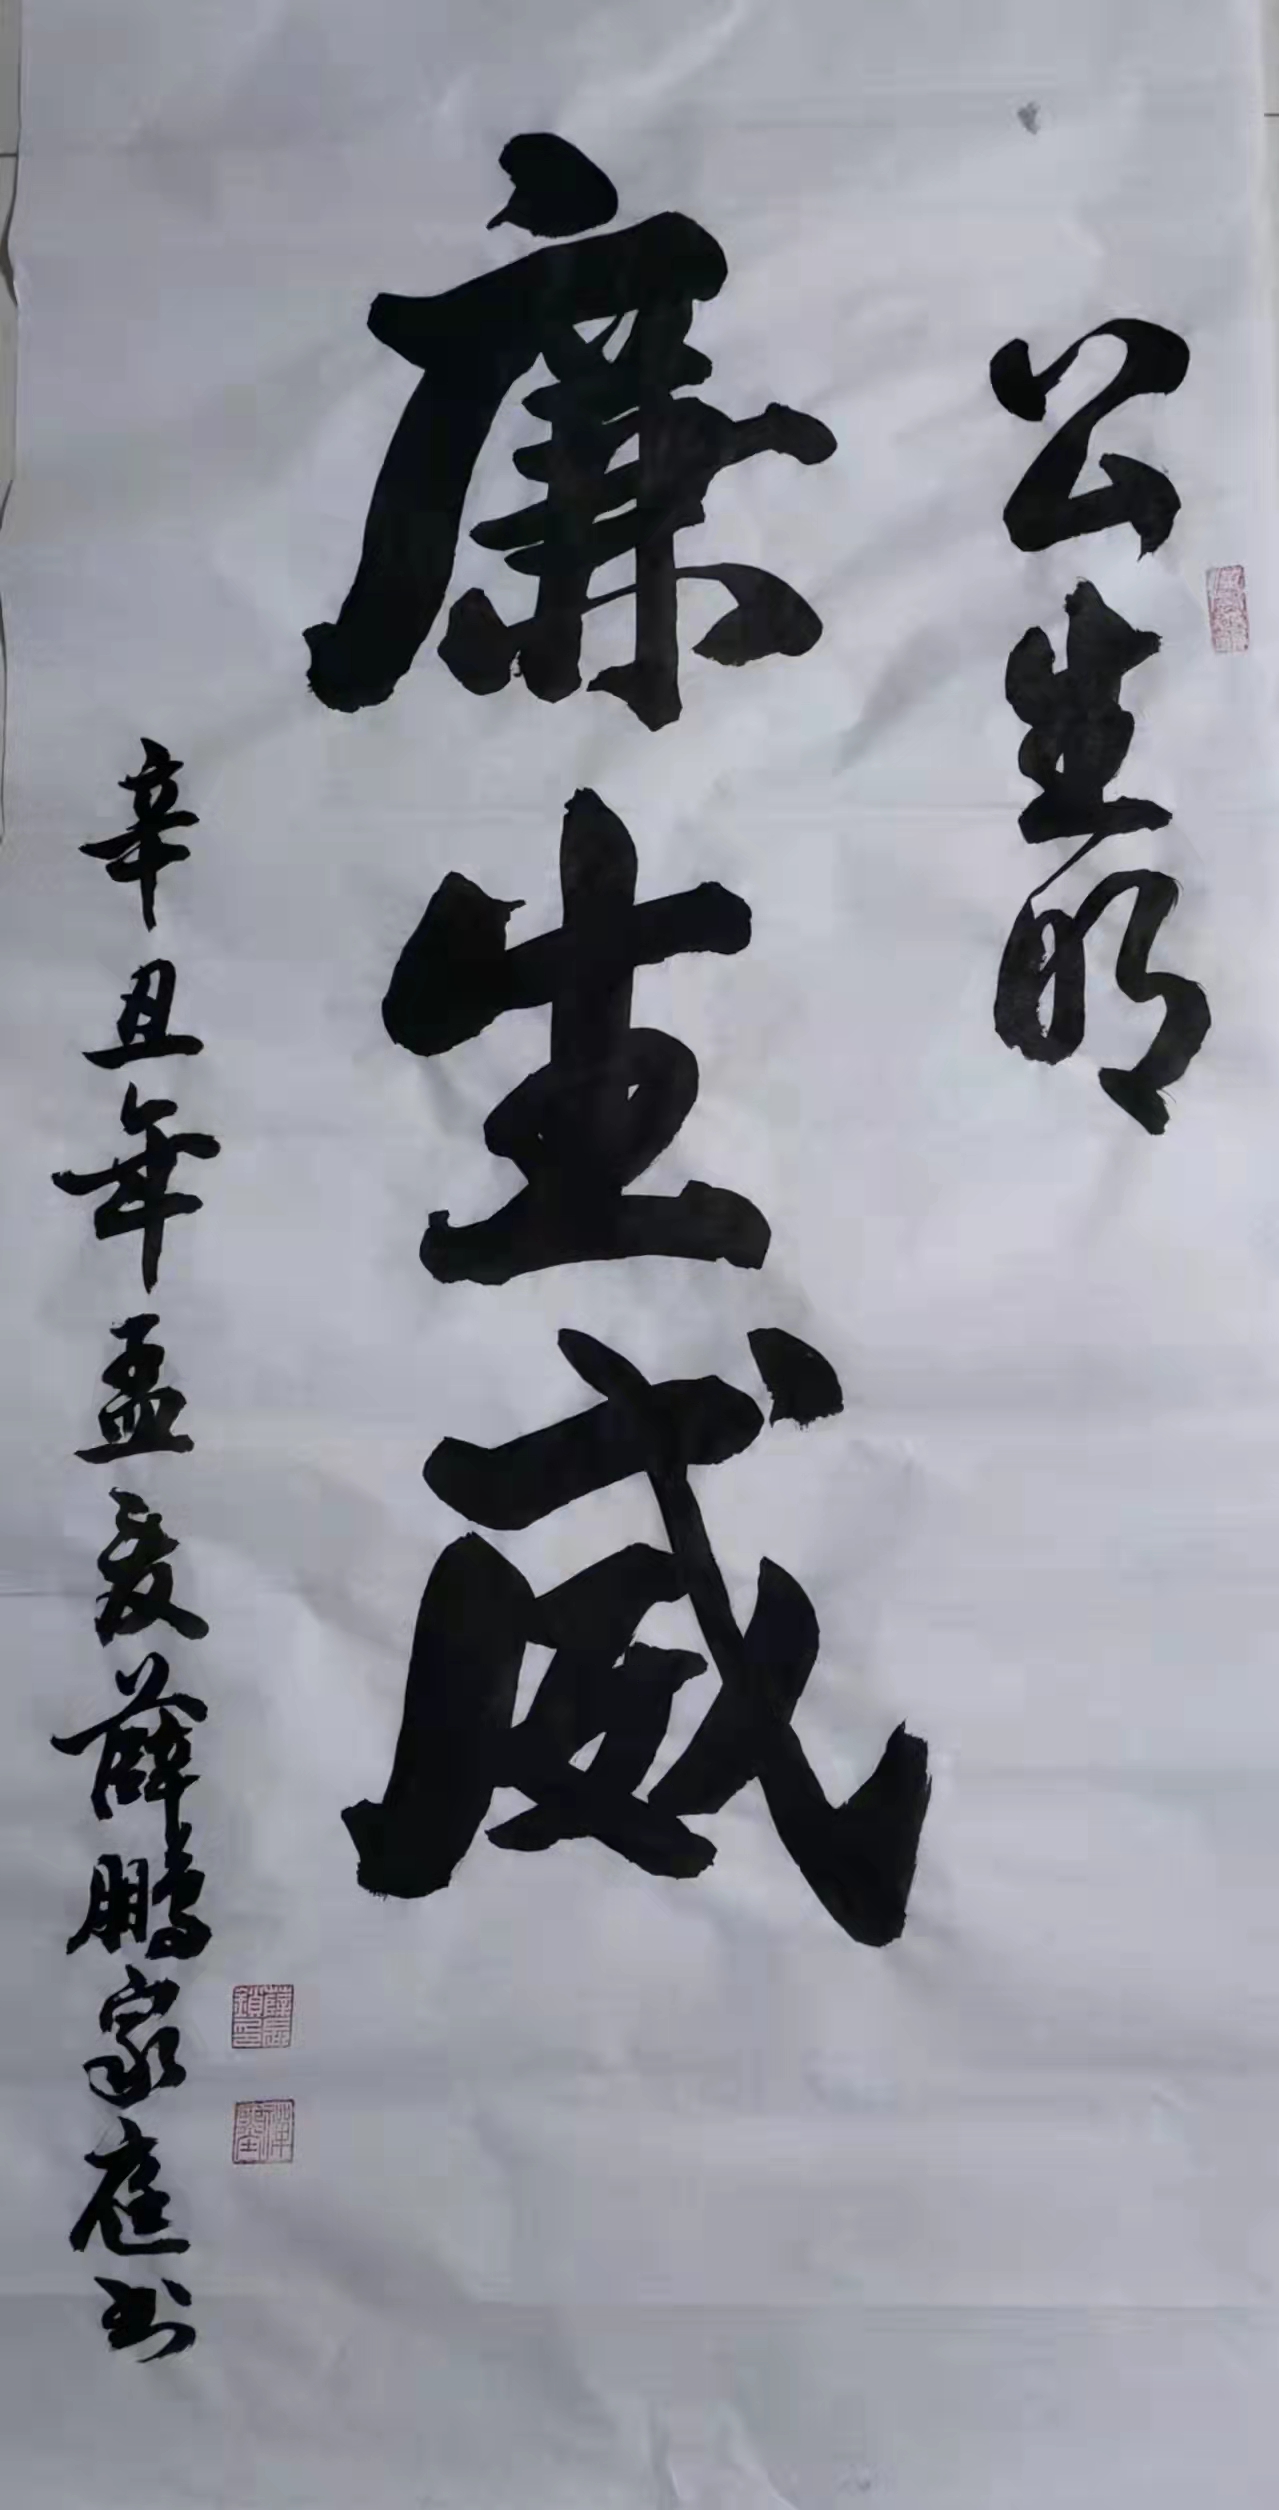 公生明
廉生威
辛丑年孟夏薛鹏家庭书